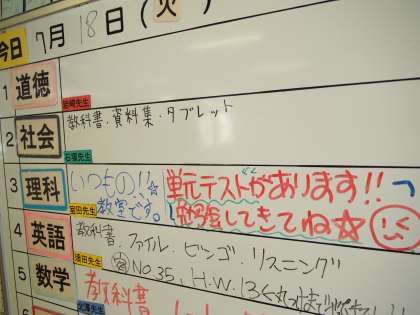 今日 7月18日(火)
1 道徳
岩崎先生
2 社会 教科書・資料集・タブレット
石塚先生
3 理科 いつもの!!☆ 単元テストがあります!!
室田先生 教室です。 勉強してきてね☆
4 英語 教科書.ファイル.ビンゴ.リスニング
須田先生 No.35, H.W.13
5 数学 教科書
6